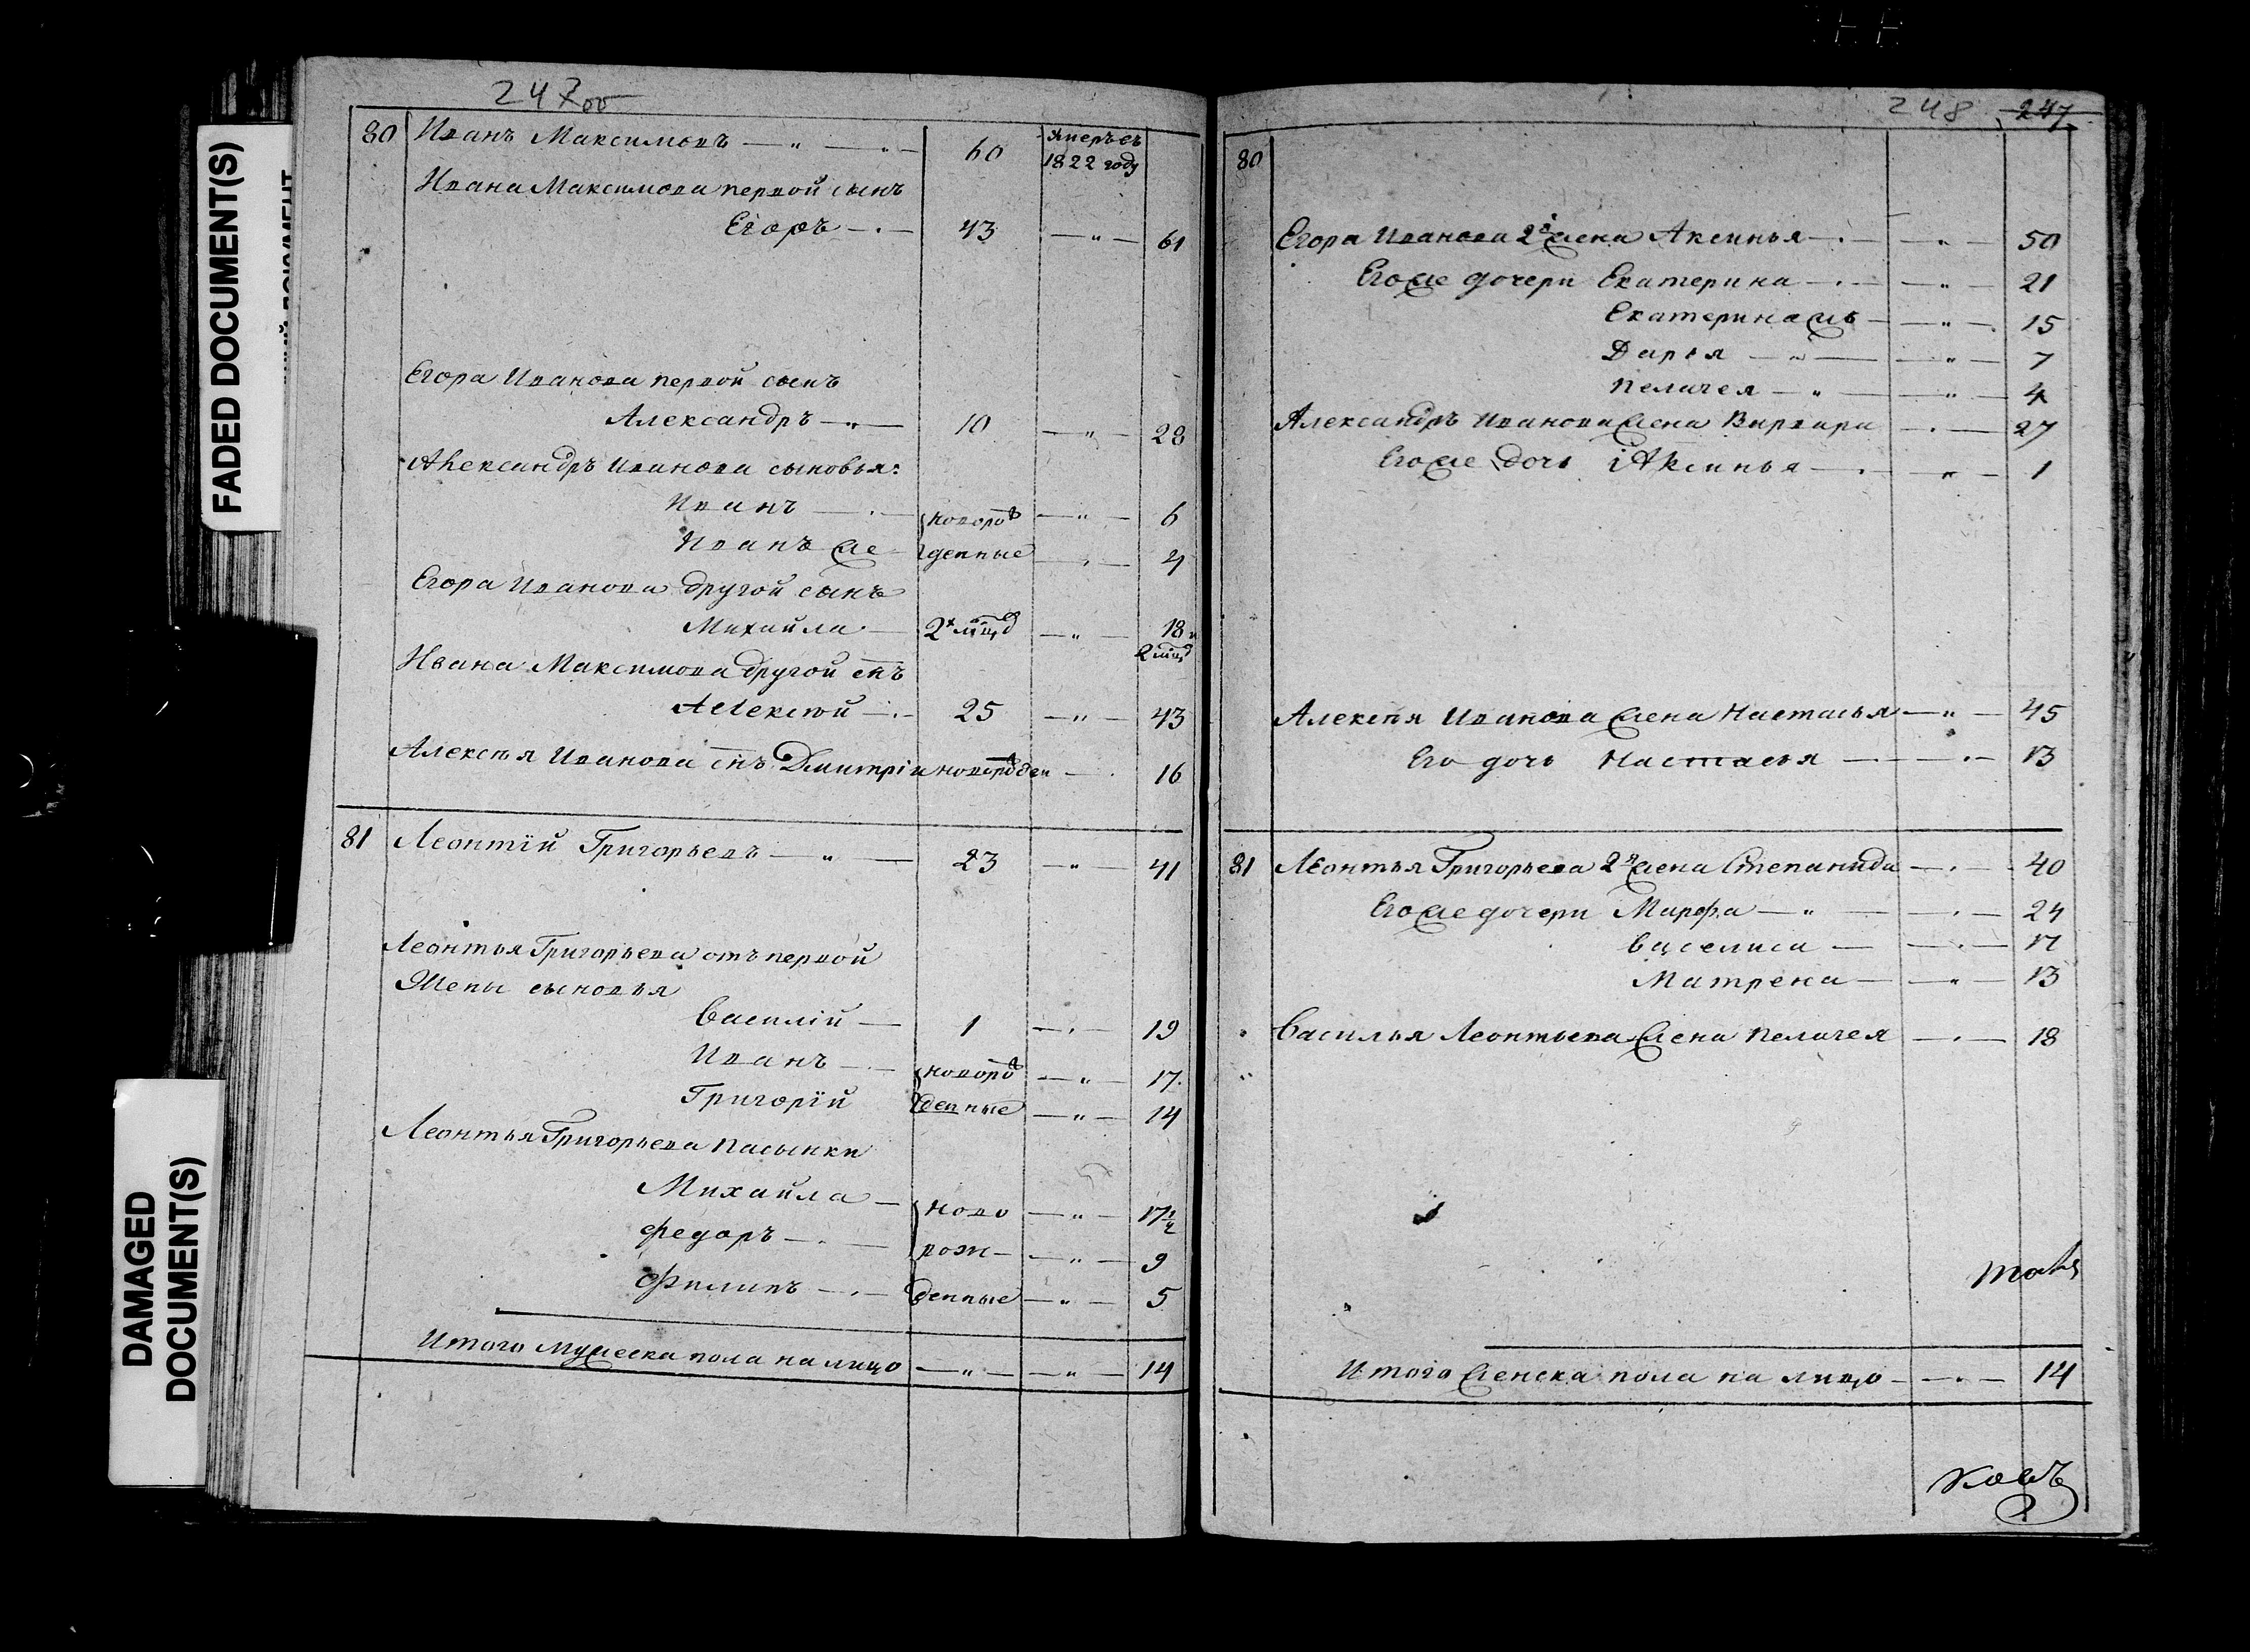 FADED DOCUMENT(S)
DAMAGED
DOCUMENT(S)
247об
80 Иванъ Максимовъ — " — " — 60 умеръ въ
1822 году
Ивана Максимова первой сынъ
Егоръ — 43 — " — 61
Егора Иванова первой сынъ
Александръ — " — 10 — " — 28
Александръ Иванова сыновья:
Иванъ — новорож — " — 6
Иванъ же денные — " — 4
Егора Иванова другой сынъ
Михайла — 2х мцд — " — 18 и
2 мцд
Ивана Максимова другой снъ
Алексѣй — 25 — " — 43
Алексѣя Иванова снъ Дмитрiй новорожден — 16
81 Леонтiй Григорьевъ — " — 23 — " — 41
Леонтья Григорьева отъ первой
Жены сыновья
Василiй — 1 — " — 19
Иванъ — новорож — " — 17
Григорiй денные — " — 14
Леонтья Григорьева пасынки
Михайла — ново — " — 17½
Федоръ — рож — " — 9
Филипъ — денные — " — 5
Итого мужеска пола на лицо — " — " — 14
248 247
80
Егора Иванова 2я жена Аксинья — " — 50
Его же дочери Екатерина — " — 21
Екатерина жъ — " — 15
Дарья — " — 7
Пелагея — " — 4
Александръ Иванова жена Варвара — 27
Его же дочь Аксинья — " — 1
Алексѣя Иванова жена Настасья — " — 45
Его дочь Настасья — " — 13
81 Леонтья Григорьева 2я жена Степанида — 40
Его же дочери Марфа — " — 24
Василиса — " — 17
Матрена — " — 13
Василья Леонтьева жена Пелагея — 18
Итого женска пола на лицо — " — 14